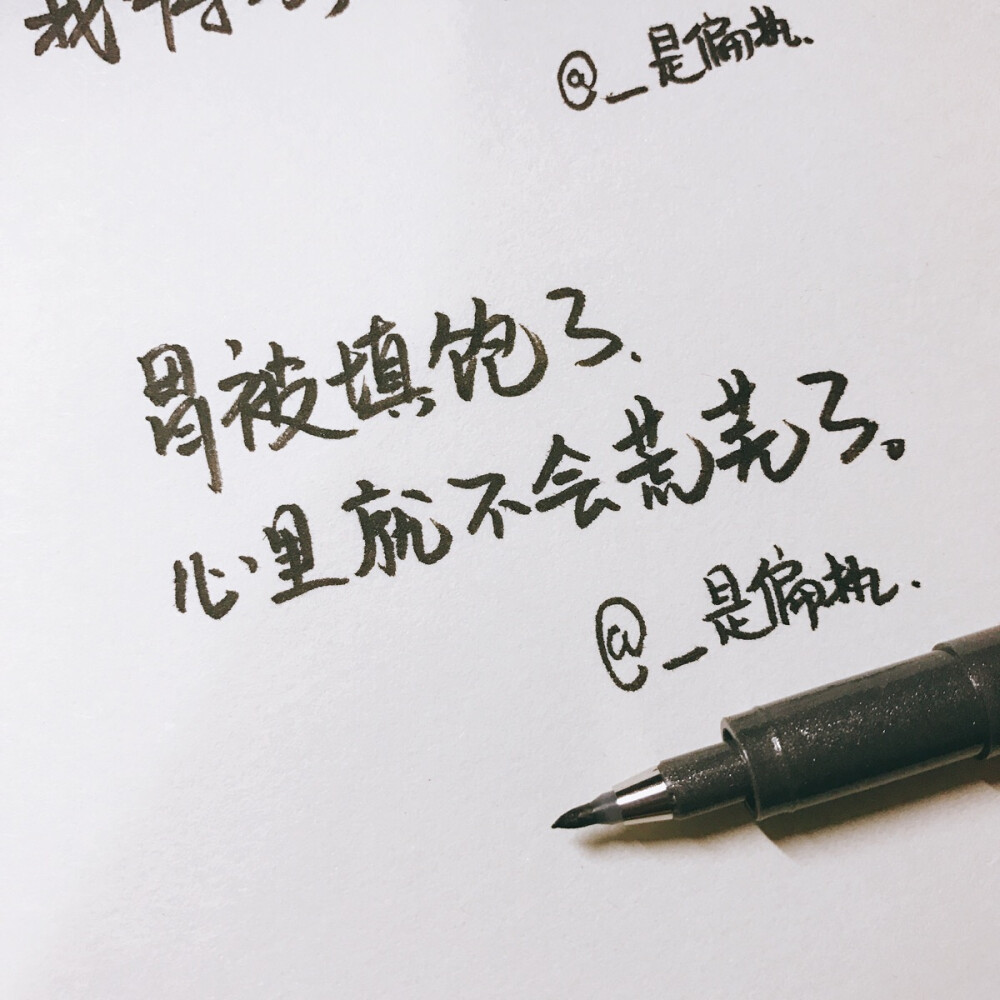 我
@_是偏执.
胃被填饱了、
心里就不会荒芜了。
@_是偏执.